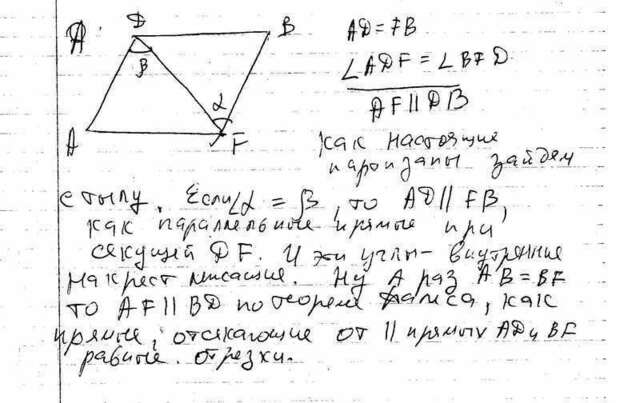 D
B
AD = FB
∠ADF = ∠BFD
AF || DB
β
α
A
F
как настоящие
партизаны зайдем
с тылу. Если ∠α = β, то AD || FB,
как параллельные прямые при
секущей DF. И эти углы - внутренние
накрест лежащие. Ну А раз AB = BF
то AF || BD по теореме Фалеса, как
прямые, отсекающие от || прямых AD и BF
равные отрезки.